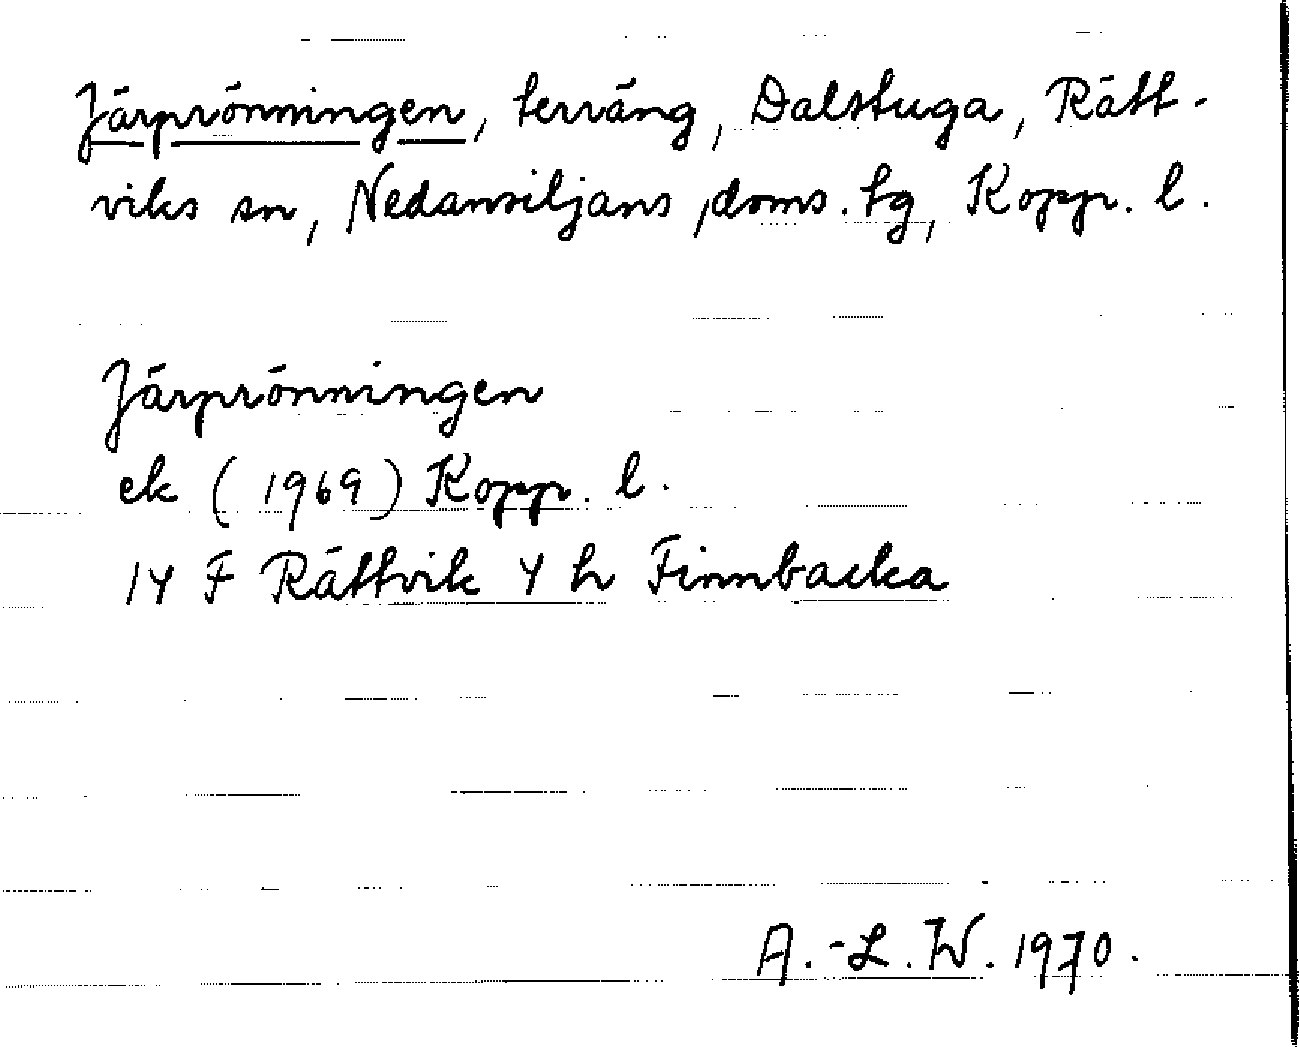 Järprönningen, terräng, Dalstuga, Rätt-
viks sn, Nedansiljans, doms. tg, Kopp. l.
Järprönningen
ek (1969) Kopp. l.
14 F Rättvik 4 h Finnbacka
A.-L. W. 1970.